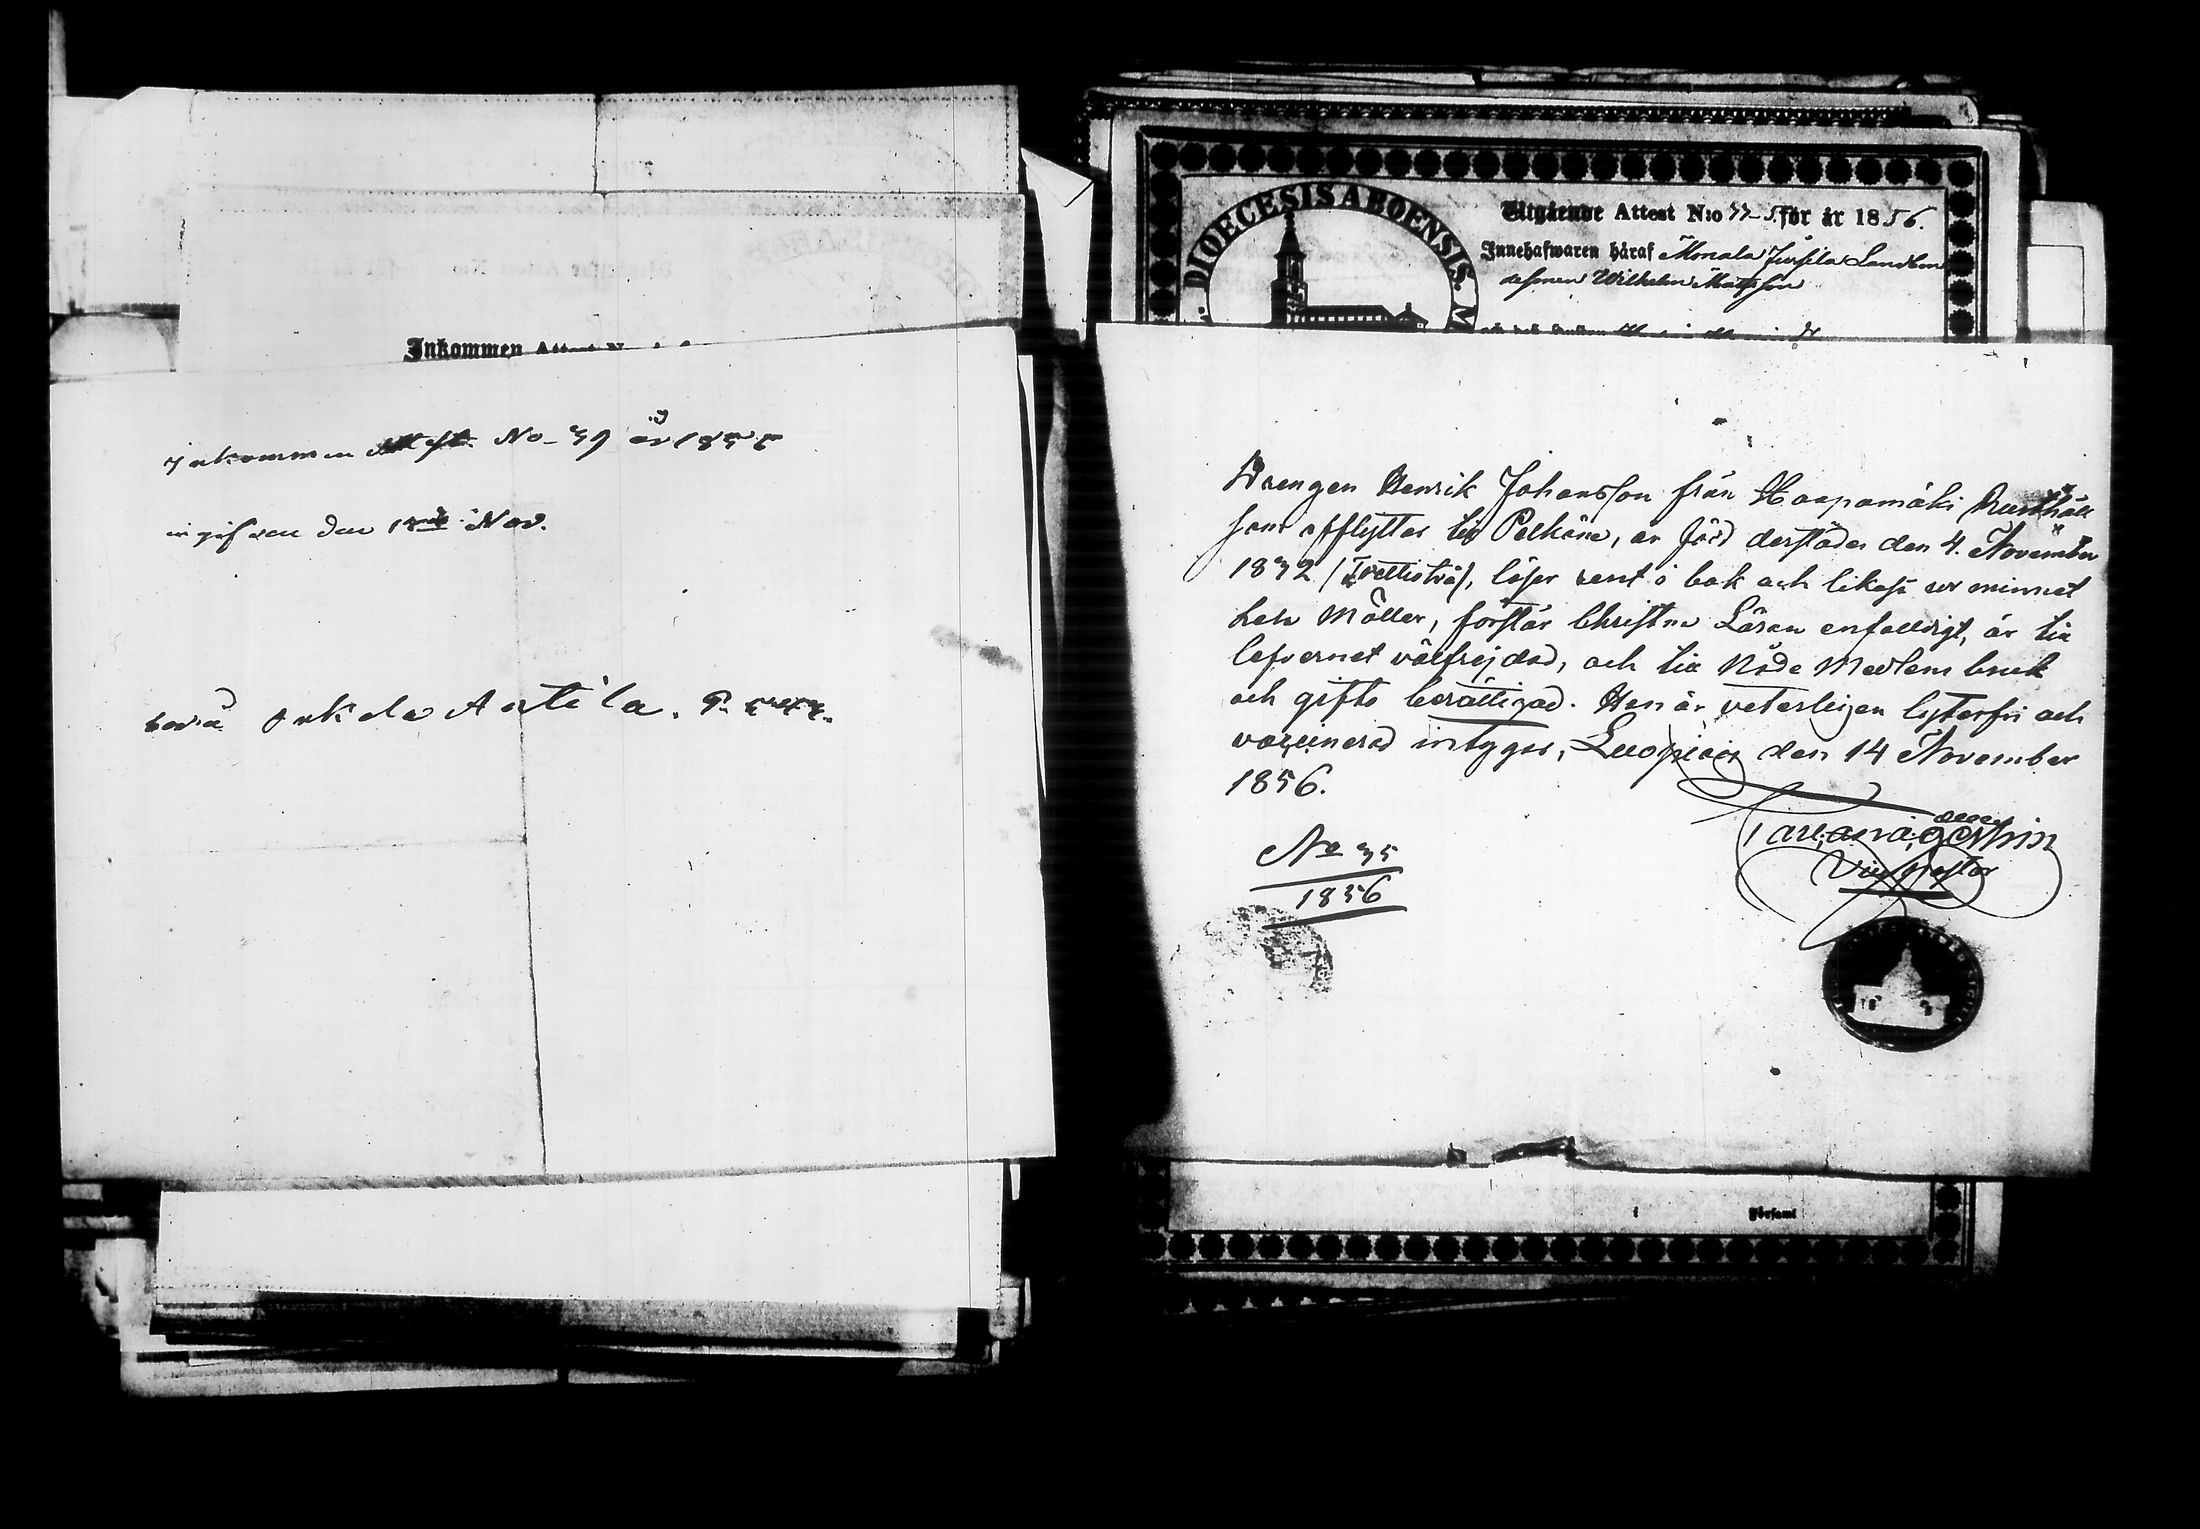 Inkommen Attest N
Inkommen Attest No 39 år 1856
ingifven den Nov.
Onkala Antila. P.
DIOECESIS ABOENSIS. M
Utgående Attest N:o för år 1856.
Innehafwaren häraf Landbon
Wilhelm Mattsson
Drengen Henrik Johansson från Haapamäki Rusthåll
som afflyttar till Pelkäne, är född derstädes den 4. November
1832 (Trettiotvå), läser rent i bok och likaså ur minnet
hela Möller, förstår Christna Läran enfaldigt, är till
lefvernet välfrejdad, och till Nåde Medlens bruk
och gifte berättigad. Han är veterligen lyterfri och
vaccinerad intygar, Luopiois den 14 November
1856.
No 35
1856
Vice pastor
i Församl